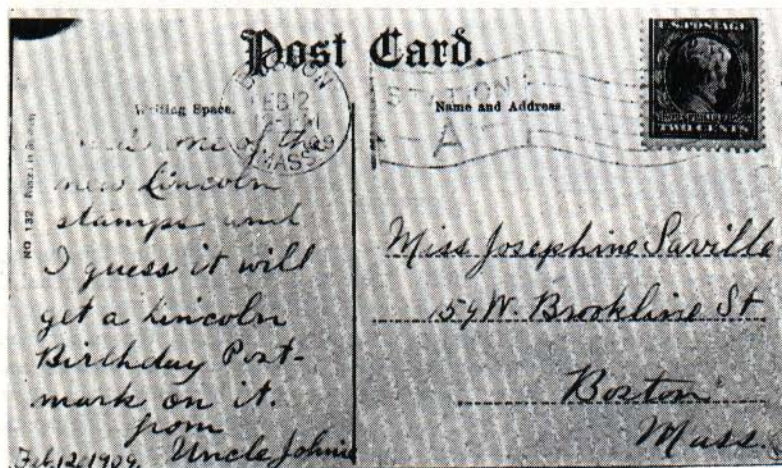 Post Card.
Writing Space.
Name and Address.
NO 132
BOSTON
FEB 12
MASS
STATION
A
U.S. POSTAGE
TWO CENTS
one of the
new Lincoln
stamps and
I guess it will
get a Lincoln
Birthday Post-
mark on it.
from
Uncle Johnie
Feb. 12, 1909.
Miss Josephine Saville
159 W. Brookline St
Boston
Mass.